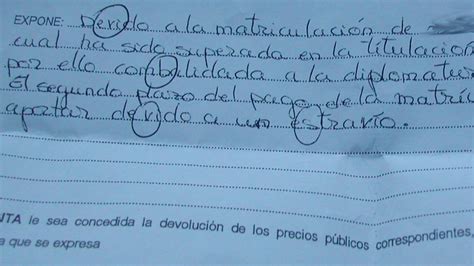 EXPONE: Devido a la matriculación de
cual ha sido superada en la titulacion
por ello combalidada a la diplomatur
El segundo plazo del pago de la matríc
aportar devido a un estravío.
UTA le sea concedida la devolución de los precios públicos correspondientes,
a que se expresa